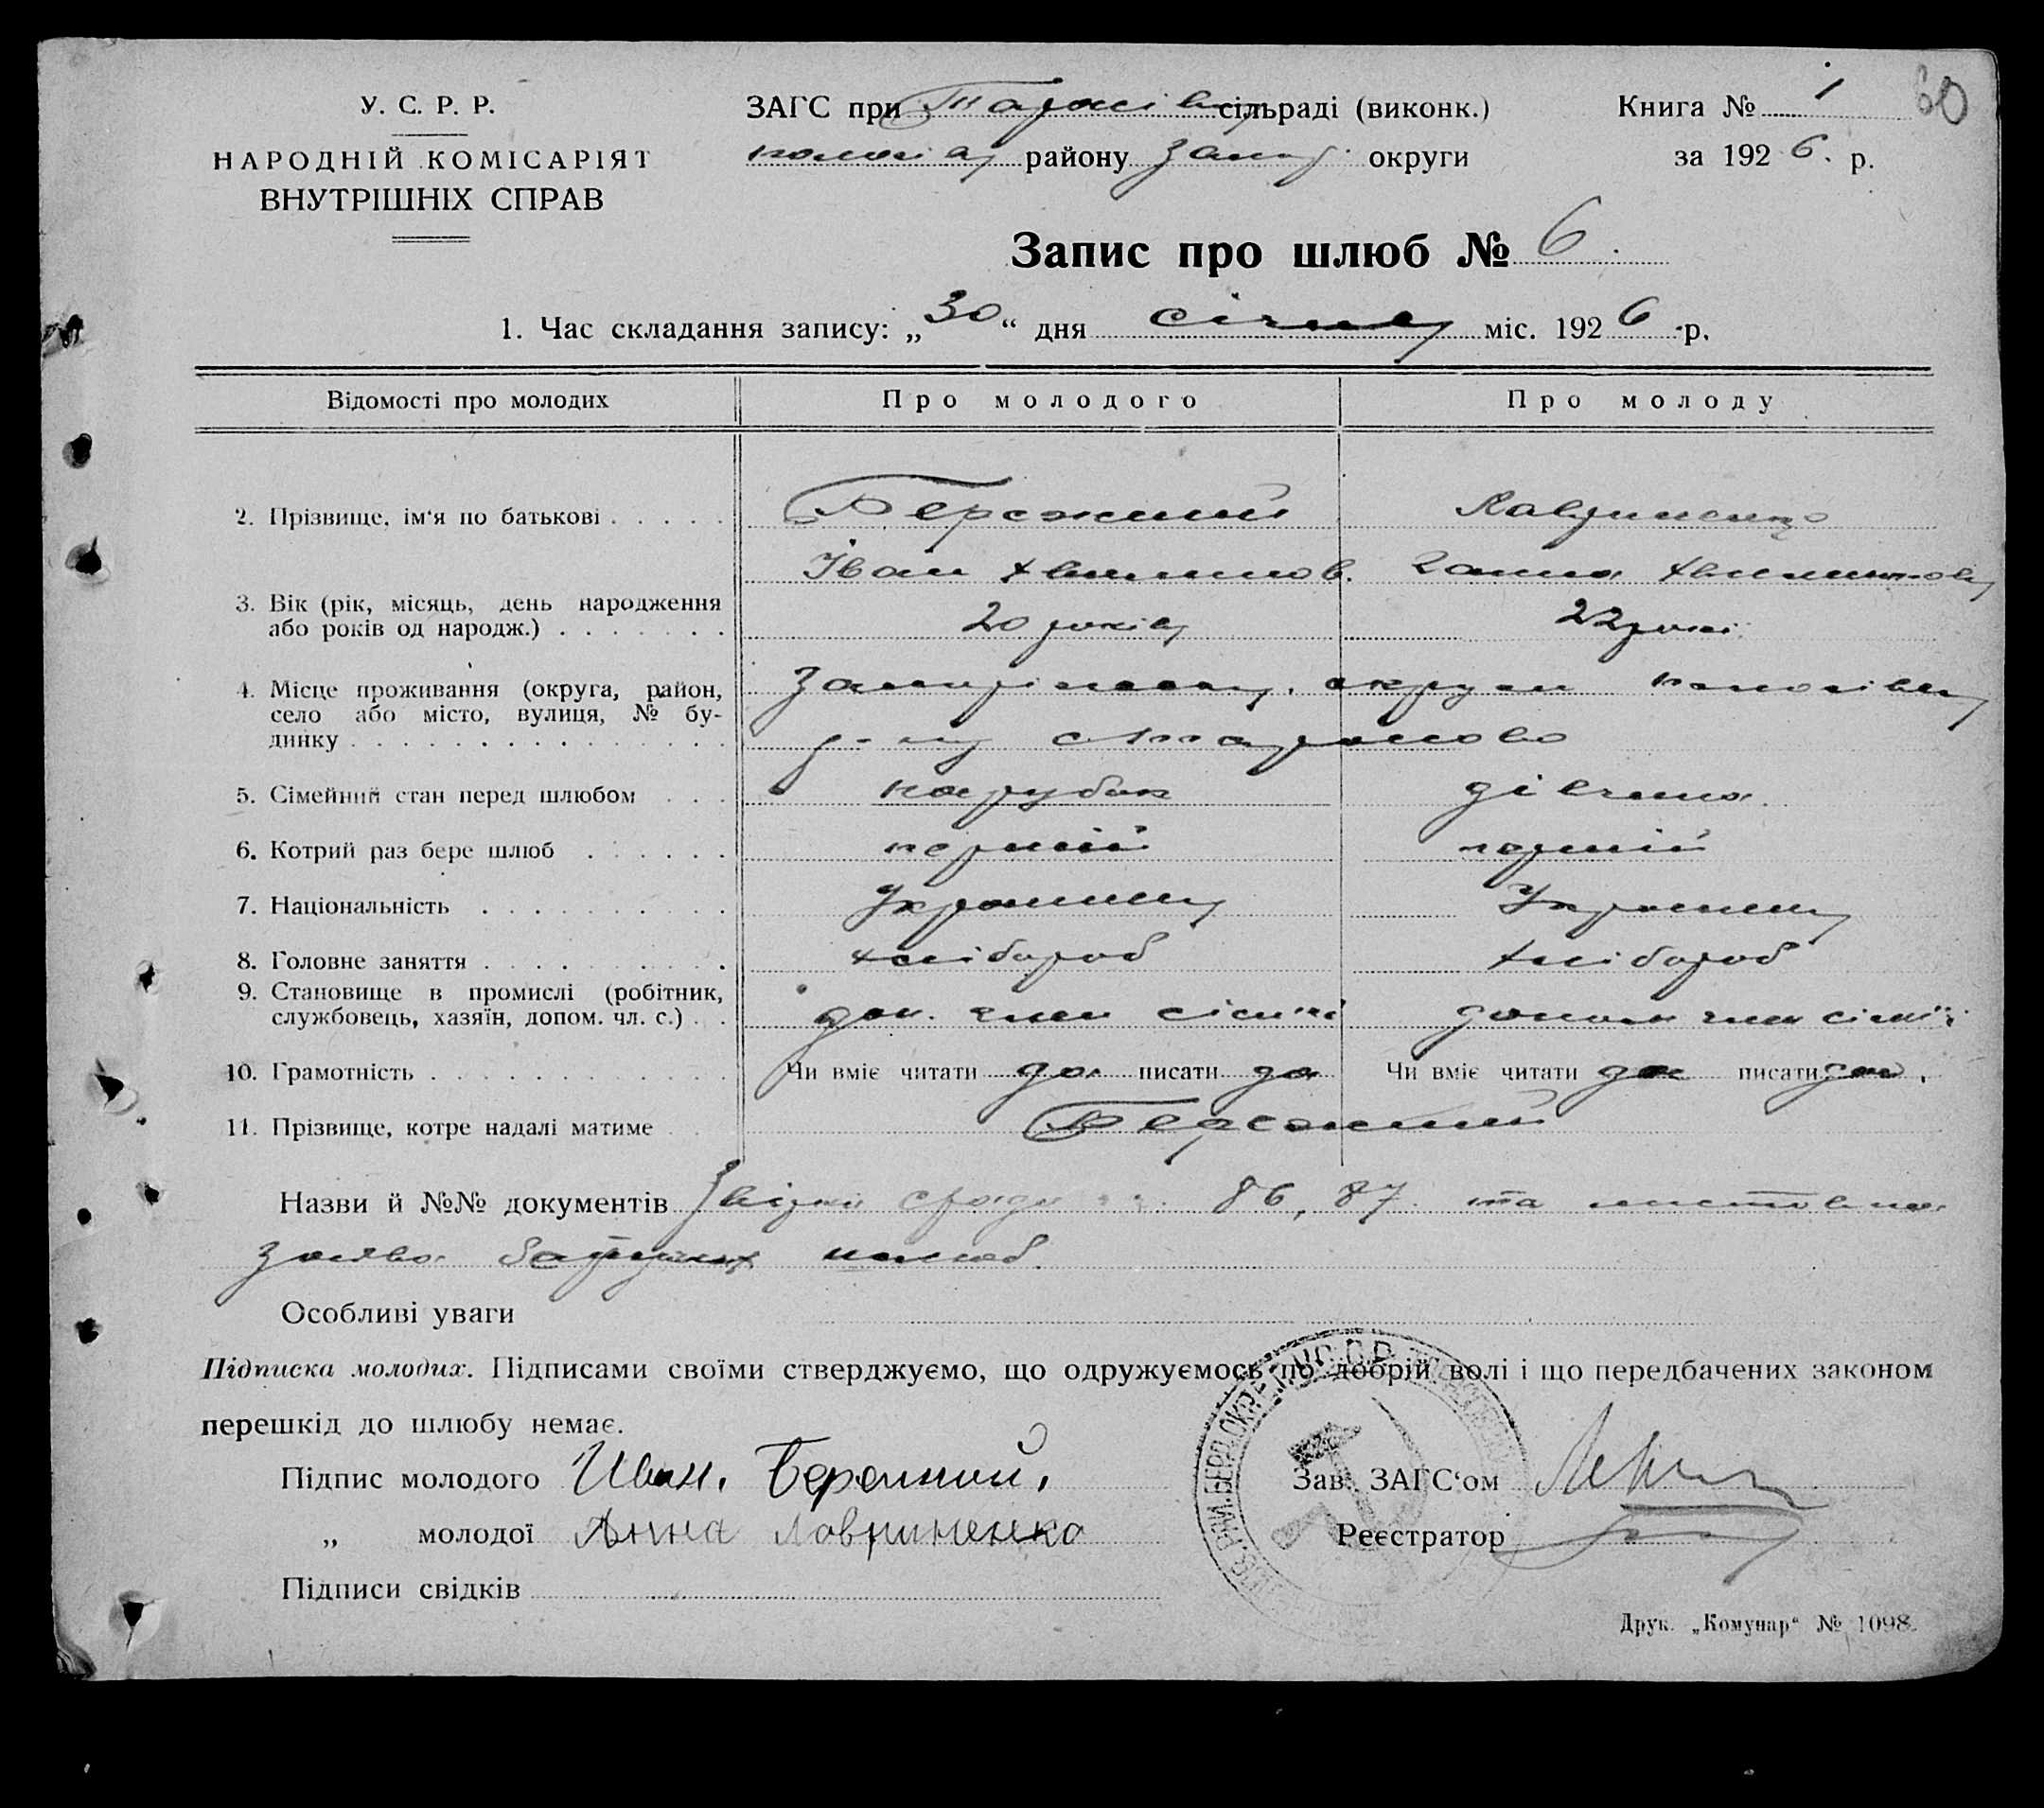 У. С. Р. Р.
НАРОДНІЙ КОМІСАРІЯТ
ВНУТРІШНІХ СПРАВ
ЗАГС при сільраді (виконк.)
району округи
Книга № 1
60
за 1926. р.
Запис про шлюб № 6.
1. Час складання запису: „30“ дня січня міс. 1926 р.
Відомості про молодих Про молодого Про молоду
2. Прізвище, ім‘я по батькові Бережний Лавриненко
Іван Ганна
3. Вік (рік, місяць, день народження
або років од народж.) 20 років 22 роки
4. Місце проживання (округа, район,
село або місто, вулиця, № бу-
динку
округи
5. Сімейний стан перед шлюбом парубок дівчина
6. Котрий раз бере шлюб перший перший
7. Національність
8. Головне заняття хлібороб хлібороб
9. Становище в промислі (робітник,
службовець, хазяїн, допом. чл. с.) доп. член сімʼї член сімʼї
10. Грамотність Чи вміє читати да писати да Чи вміє читати да писати да.
11. Прізвище, котре надалі матиме Бережний
Назви й №№ документів 86, 87 та
заява
Особливі уваги
Підписка молодих. Підписами своїми стверджуємо, що одружуємось по добрій волі і що передбачених законом
перешкід до шлюбу немає.
Підпис молодого Иван. Бережний.
„ молодої Анна Лавриненко
Підписи свідків
Зав. ЗАГС‘ом
Реєстратор
Друк. „Комунар“ № 1098.